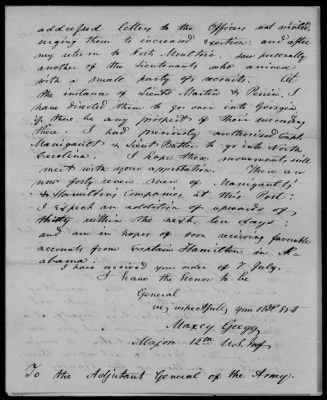 addressed letters to the Officers not visited,
urging them to increased exertion: and after
my return to Fort Moultrie saw personally
another of the Lieutenants who arrived
with a small party of recruits. At
the instance of Lieuts Martin & Perrin, I
have directed them to go over into Georgia
if there be any prospect of their succeeding
there. I had previously authorized Capt.
Manigault & Lieut Butler to go into North
Carolina. I hope these movements will
meet with your approbation. There are
now forty seven men of Manigault's
& Hamilton's Companies at this Post:
I expect an addition of upwards of
thirty within the next ten days:
and am in hopes of soon receiving favorable
accounts from Captain Hamilton in A-
bama:
I have received your order of 7 July.
I have the honor to be
General
very respectfully your obdt Svt
Maxcy Gregg
Major 12th U.S. Inf
To the Adjutant General of the Army.